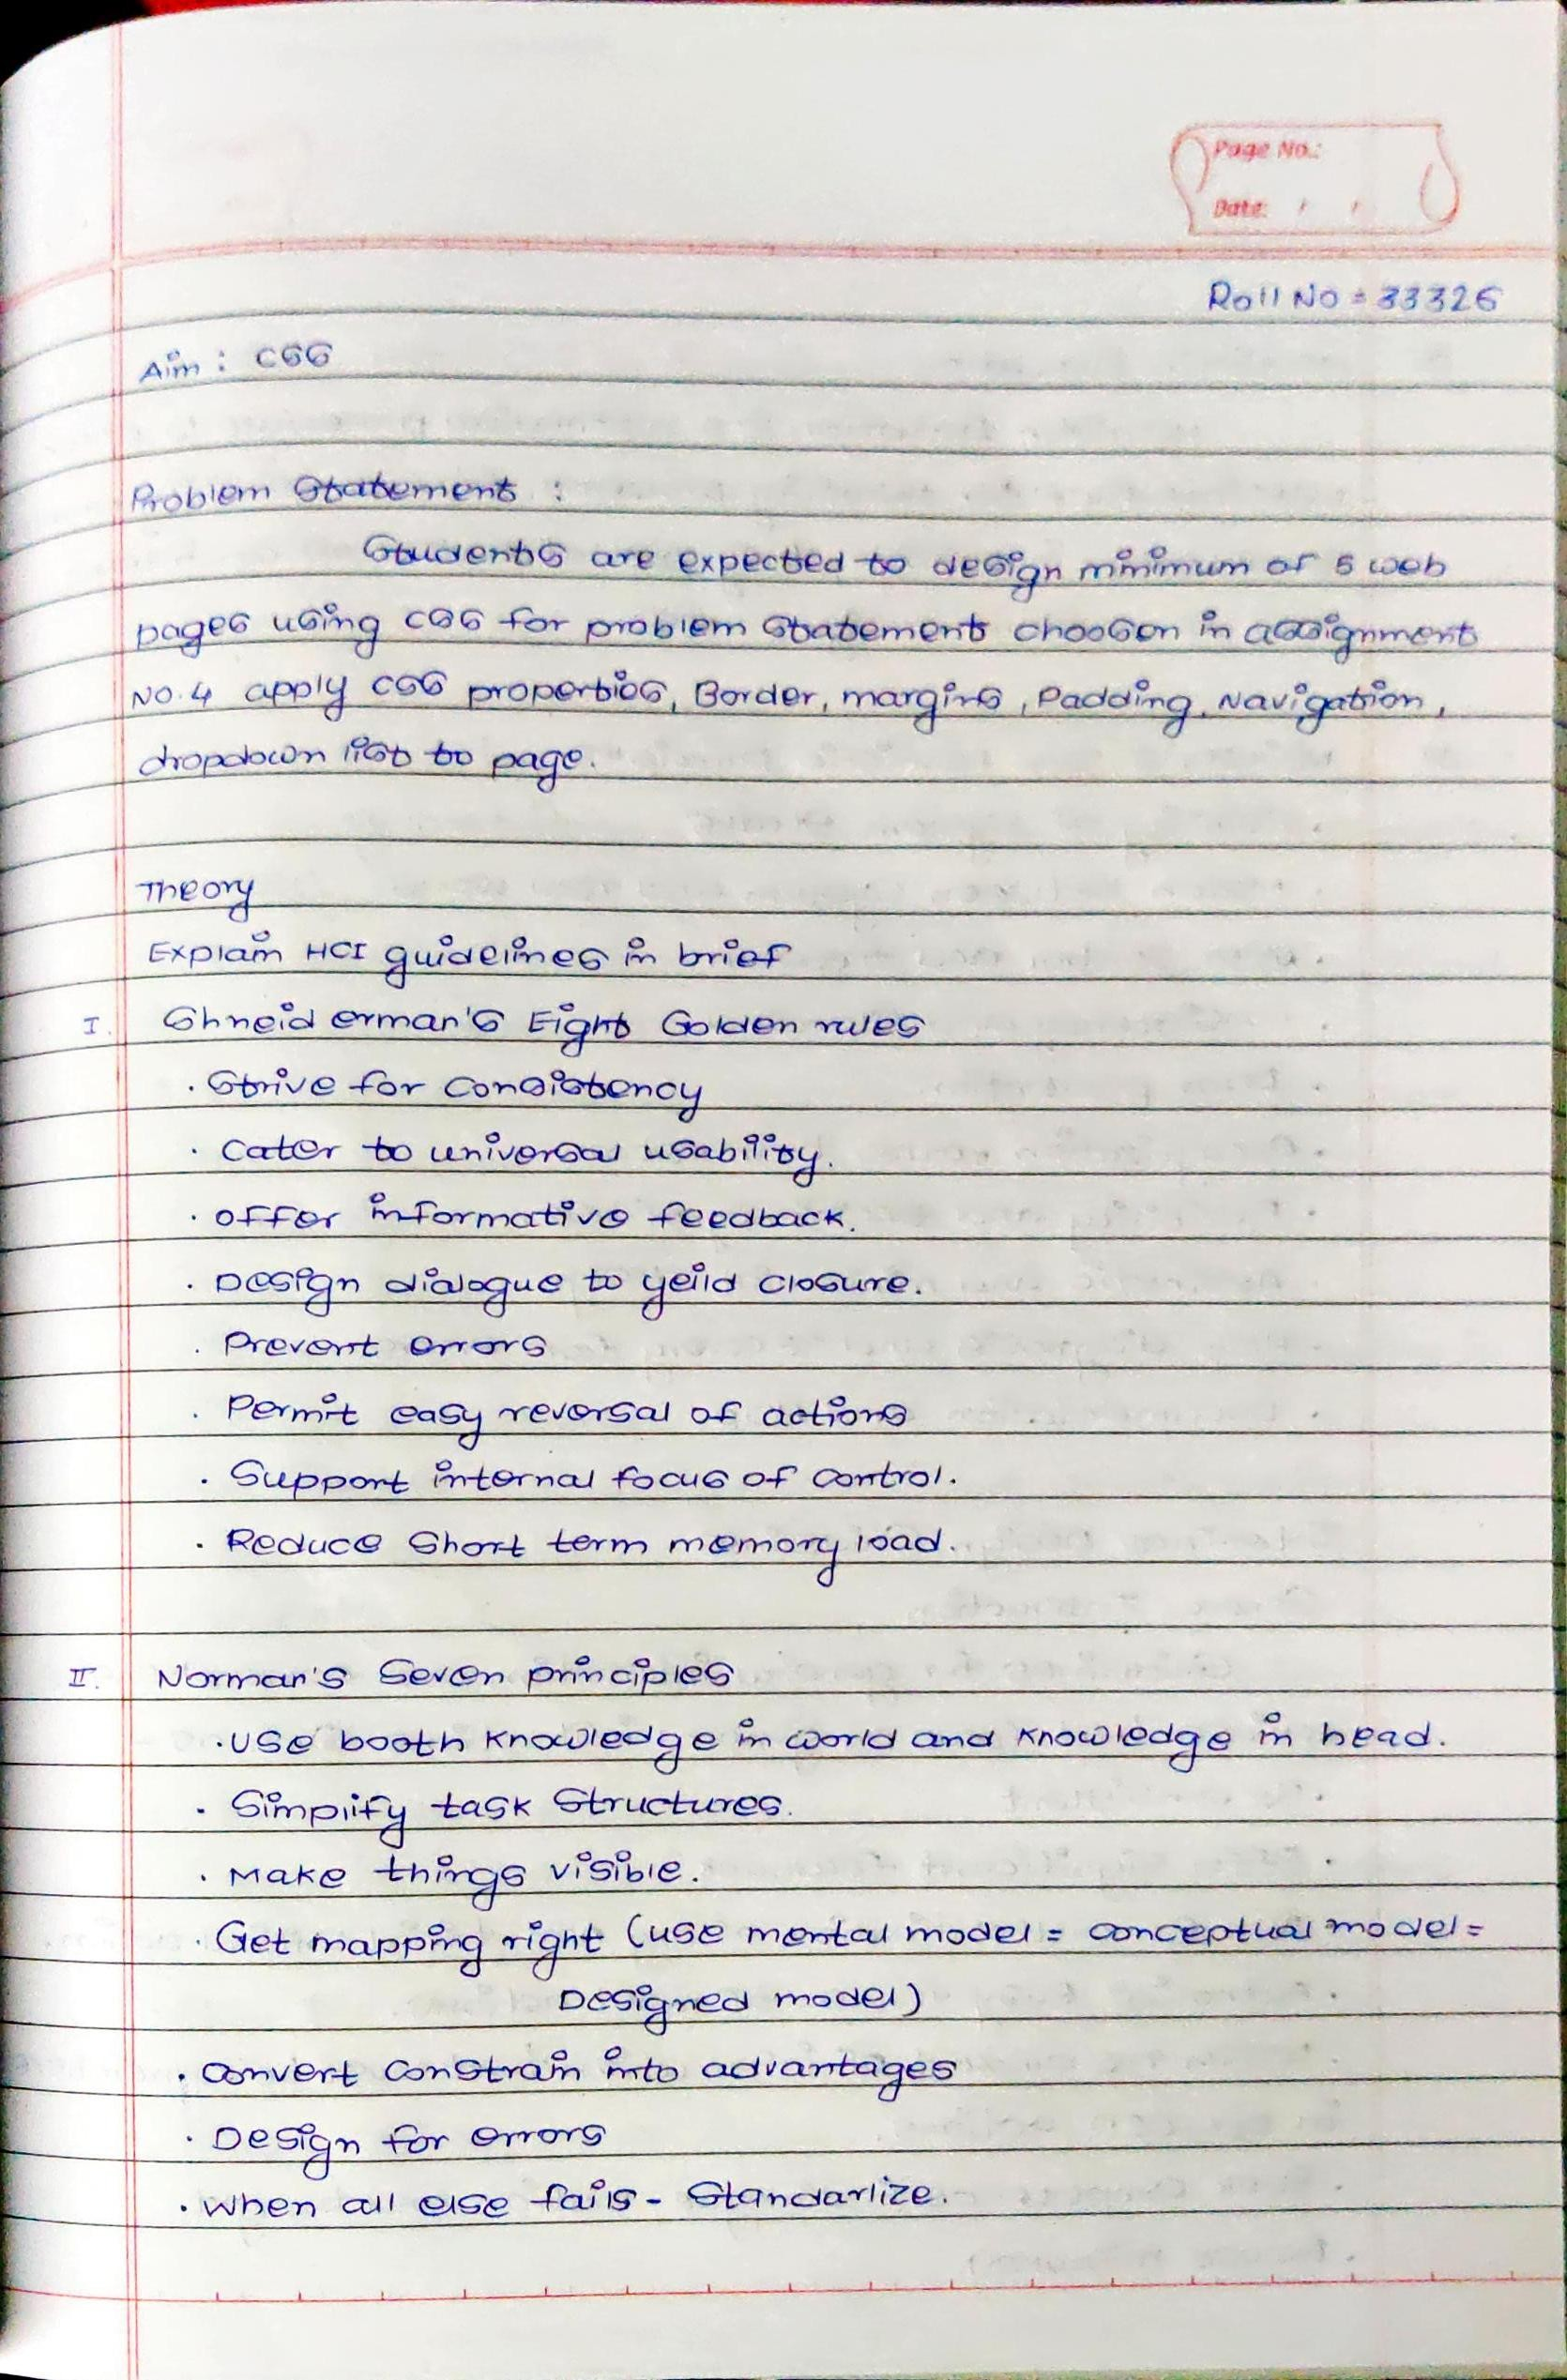 Page No.:
Date: / /
Roll No = 33326
Aim : CSS
Problem Statement :
Students are expected to design minimum of 5 web
pages using CSS for problem statement choosen in assignment
No.4 apply CSS properties, Border, margins, Padding, Navigation,
dropdown list to page.
Theory
Explain HCI guidelines in brief
I. Shneid erman's Eight Golden rules
. Strive for consistency
. Cater to universal usability.
. offer informative feedback.
. Design dialogue to yeild closure.
. Prevent errors
. Permit easy reversal of actions
. Support internal focus of control.
. Reduce short term memory load.
II. Norman's Seven principles
. Use booth knowledge in world and knowledge in head.
. Simplify task structures.
. Make things visible.
. Get mapping right (use mental model = conceptual model =
Designed model)
. convert constrain into advantages
. Design for errors
. When all else fails - Standarlize.